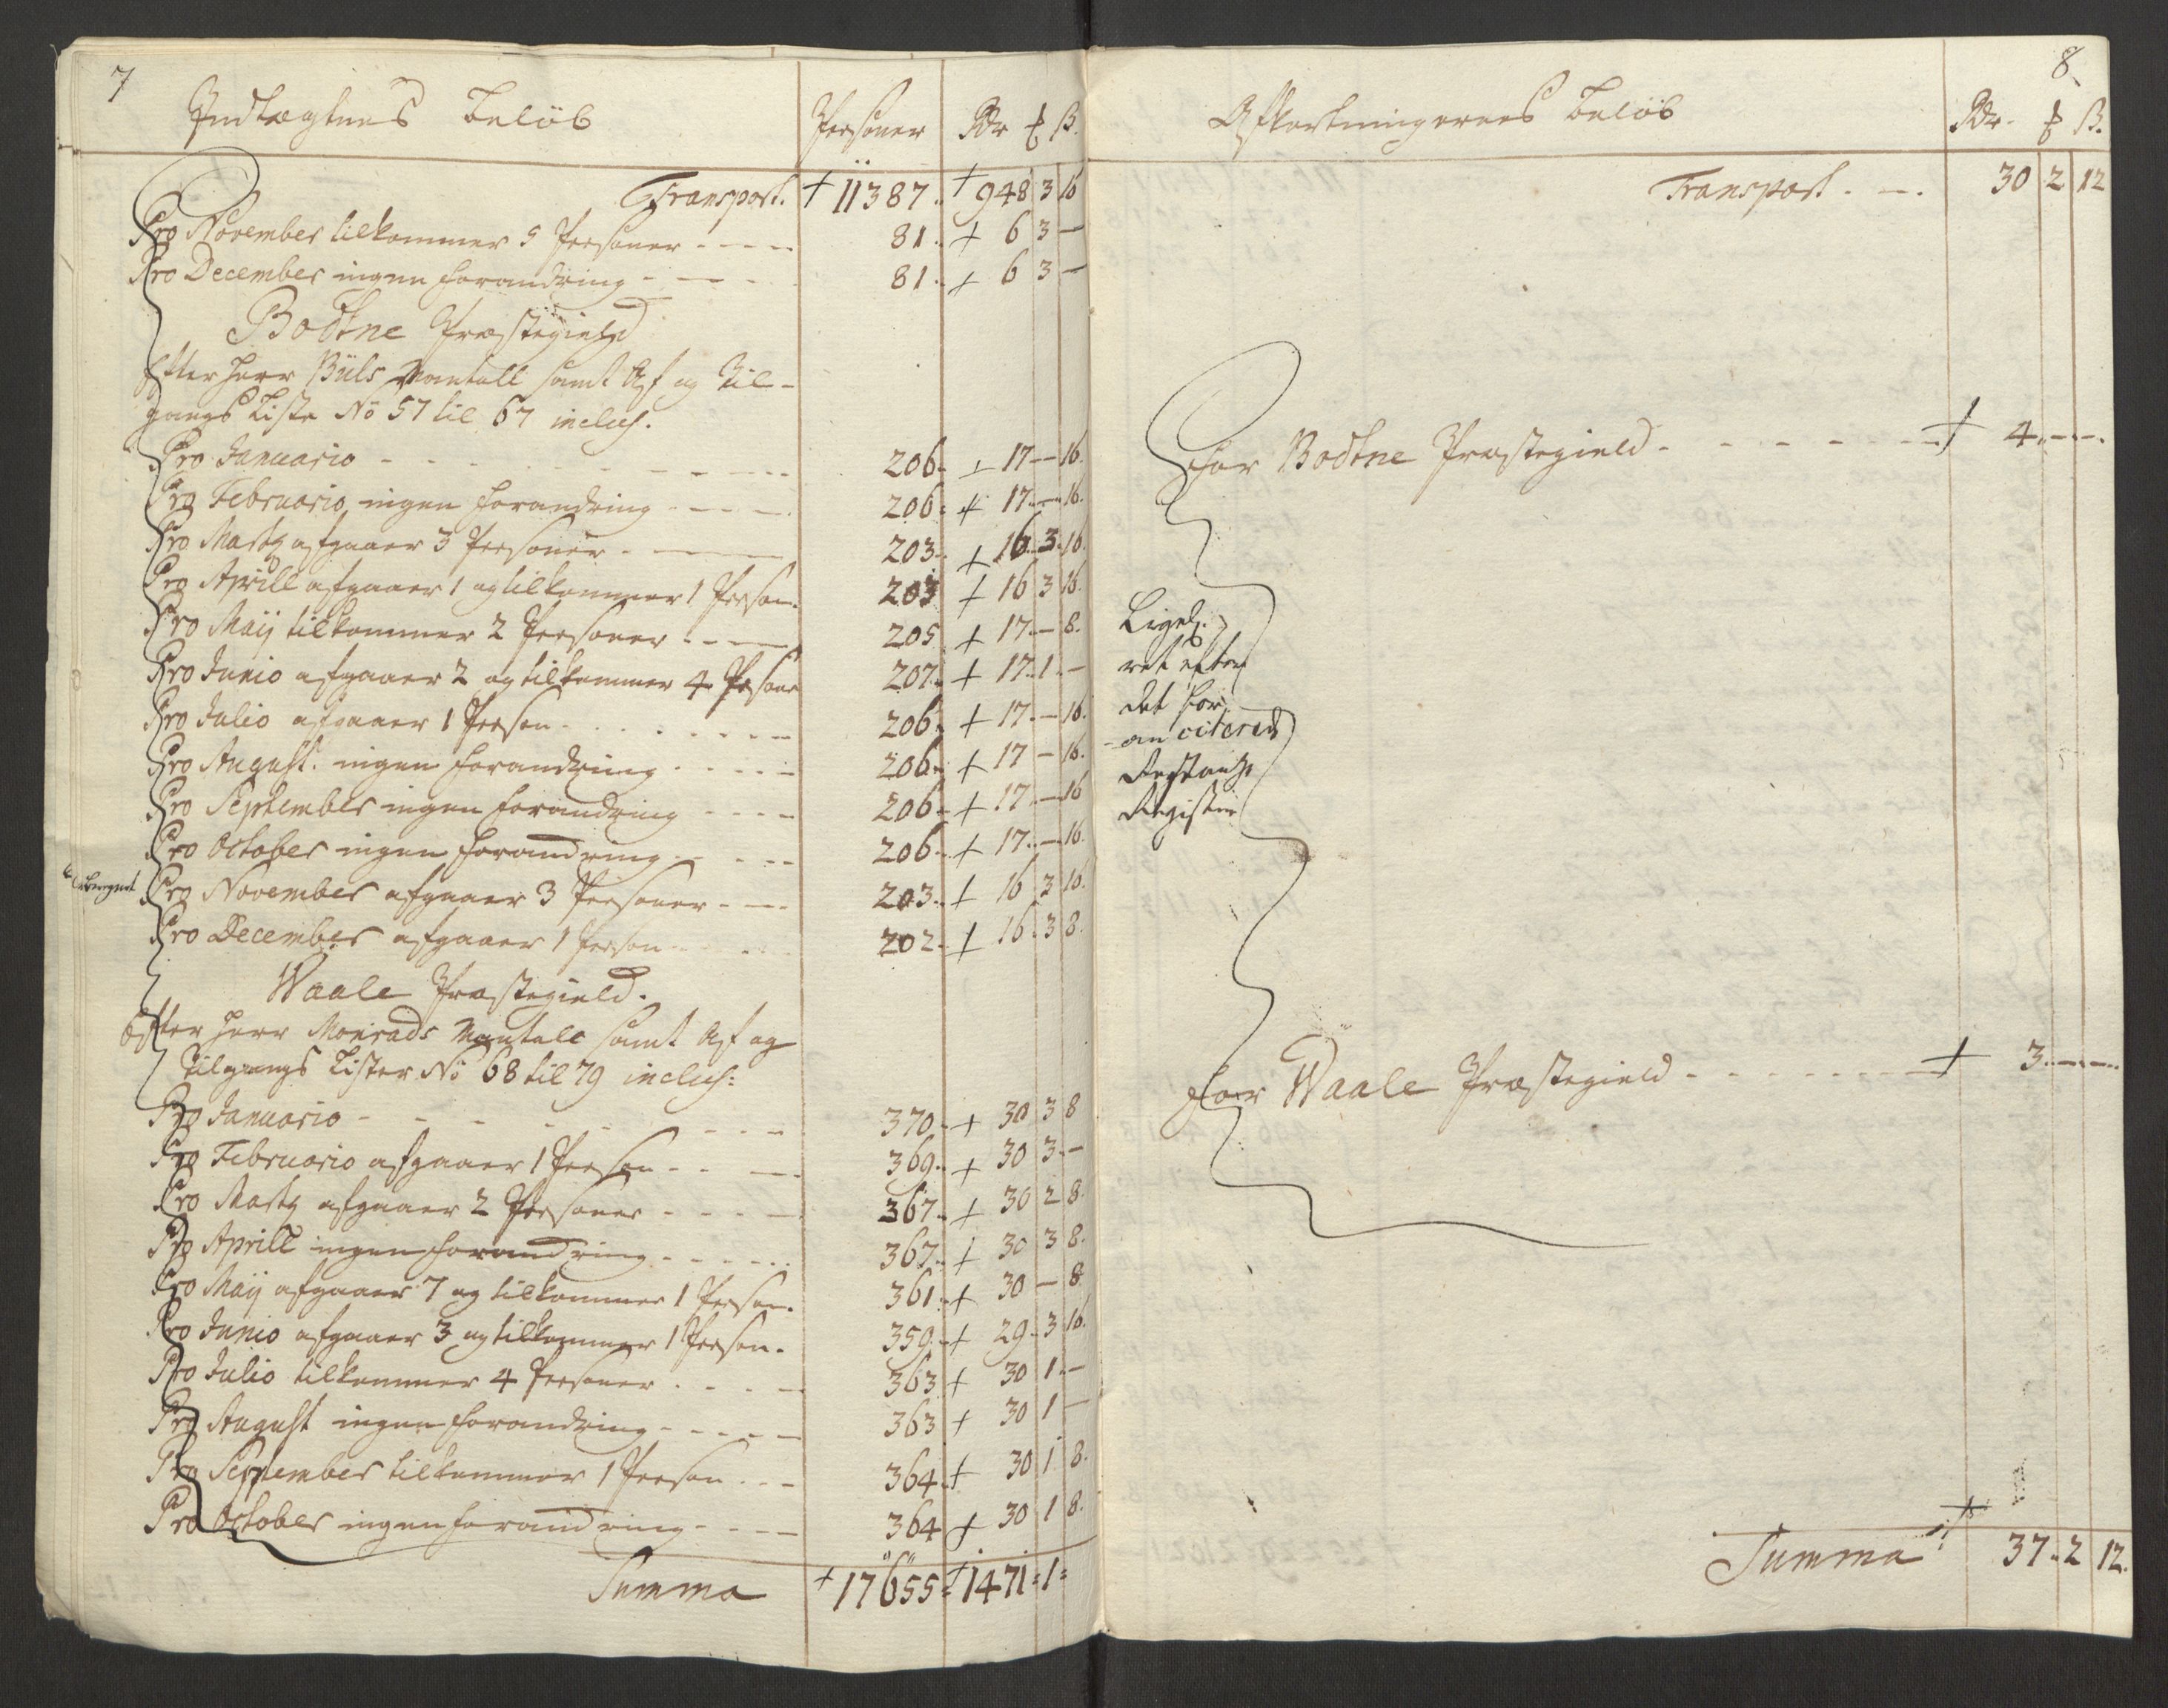 7
Indtægtnes Beløb Personer Rdr ꝑ ß.
Transport. + 11387. + 948 3 16
Pro November tilkommer 5 Personer 81. + 6 3 —
Pro December ingen forandring 81. + 6 3 —
Bodtne Præstegield
Efter Herr Büls Mantall samt Af og Til-
gangs Liste No 57 til 67 inclus.
Pro Januario 206. + 17 — 16.
Pro Februario ingen forandring 206. + 17 — 16.
Pro Marty afgaaer 3 Personer 203. + 16. 3. 16.
Pro Aprill afgaaer 1 og tilkommer 1 Person. 203 + 16 3 16.
Pro Maij tilkommer 2 Personer 205 + 17. — 8.
Pro Junio afgaaer 2 og tilkommer 4 Persone 207. + 17. 1. —
Pro Julio afgaaer 1 Person 206. + 17. — 16.
Pro August. ingen forandring 206. + 17 — 16.
Pro September ingen forandring 206. + 17. — 16
Pro October ingen forandring 206. + 17. — 16.
Pro November afgaaer 3 Personer 203. + 16 3 16.
Pro December afgaaer 1 Person 202. + 16. 3 8.
Waale Præstegield.
Efter Herr Monrads Mantale samt Af og
Tilgangs Lister No 68 til 79 inclus:
Pro Januario 370. + 30 3 8
Pro Februario afgaaer 1 Person 369. + 30 3. —
Pro Marty afgaaer 2 Personer 367. + 30 2 8.
Pro Aprill ingen forandring 367. + 30 3 8.
Pro Maij afgaaer 7 og tilkommer 1 Person. 361. + 30 — 8
Pro Junio afgaaer 3 og tilkommer 1 Person. 359. + 29. 3 16.
Pro Julio tilkommer 4 Personer 363 + 30 1. —
Pro August ingen forandring 363 + 30 1 —
Pro September tilkommer 1 Person 364. + 30 1 8.
Pro October ingen forandring 364 + 30 1 8.
Summa + 17655 = + 1471 = 1 =
8
Afkortningernes Beløb Rdr. ꝑ ß.
Transport 30 2 12
For Bodtne Præstegield + 4. — —
Ligeß.
ret efter
det for
an citerede
Restantz
Register
For Waale Præstegield + 3. — —
Summa 37. 2 12.